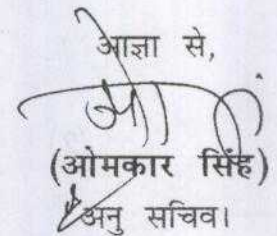 आज्ञा से,
(ओमकार सिंह)
अनु सचिव।